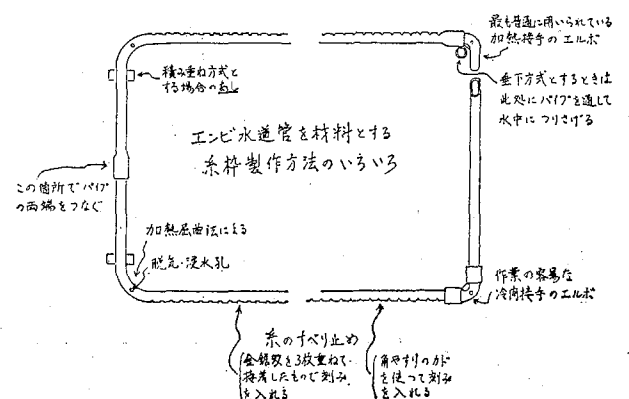 最も普通に用いられている
加熱接手のエルボ
積み重ね方式と
する場合のあし
垂下方式とするときは
此処にパイプを通して
水中につりさげる
エンビ水道管を材料とする
糸枠製作方法のいろいろ
この箇所でパイプ
の両端をつなぐ
加熱屈曲法による
脱気・浸水孔
作業の容易な
冷間接手のエルボ
糸のすべり止め
金鋸刃を3枚重ねて
接着したもので刻み
を入れる
角やすりのカド
を使って刻み
を入れる